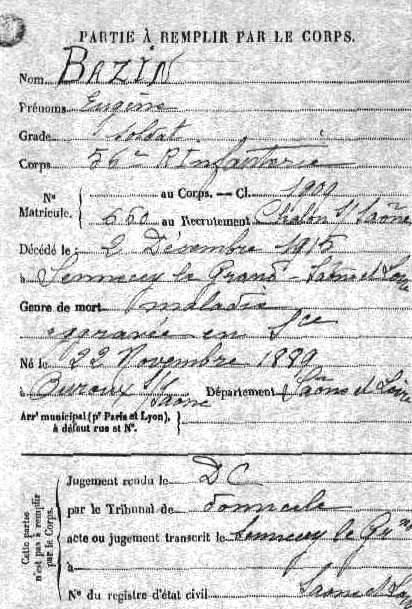 PARTIE À REMPLIR PAR LE CORPS.
Nom BAZIN
Prénoms Eugène
Grade Soldat
Corps 56e R Infanterie
Nº Matricule.
au Corps. — Cl. 1909
560 au Recrutement Chalon S/ Saône
Décédé le 2 Désembre 1915
à Sennecey le Grand - Saône et Loire
Genre de mort maladie
aggravée en Sce
Né le 22 Novembre 1889
à Ouroux S/ Saône Département Saône et Loire
Arrt municipal (pr Paris et Lyon),
à défaut rue et Nº.
Cette partie n'est pas à remplir par le Corps.
Jugement rendu le DC
par le Tribunal de domicile
acte ou jugement transcrit le Sennecey le Gr
à
Nº du registre d'état civil Saone et Loi